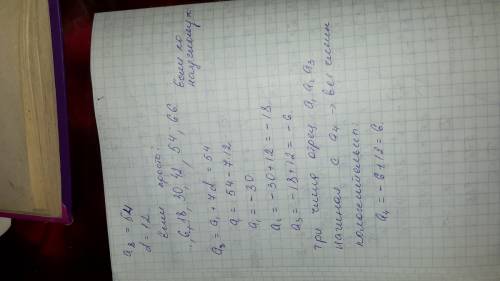 a₈ = 54
d = 12
если просто:
.., 6, 18, 30, 42, 54, 66
если по научному:
a₈ = a₁ + 7d = 54
a₁ = 54 - 7·12
a₁ = -30
a₂ = -30 + 12 = -18.
a₃ = -18 + 12 = -6.
три числа отриц a₁ a₂ a₃
начиная с a₄ → все числа
положительные:
a₄ = -6 + 12 = 6.